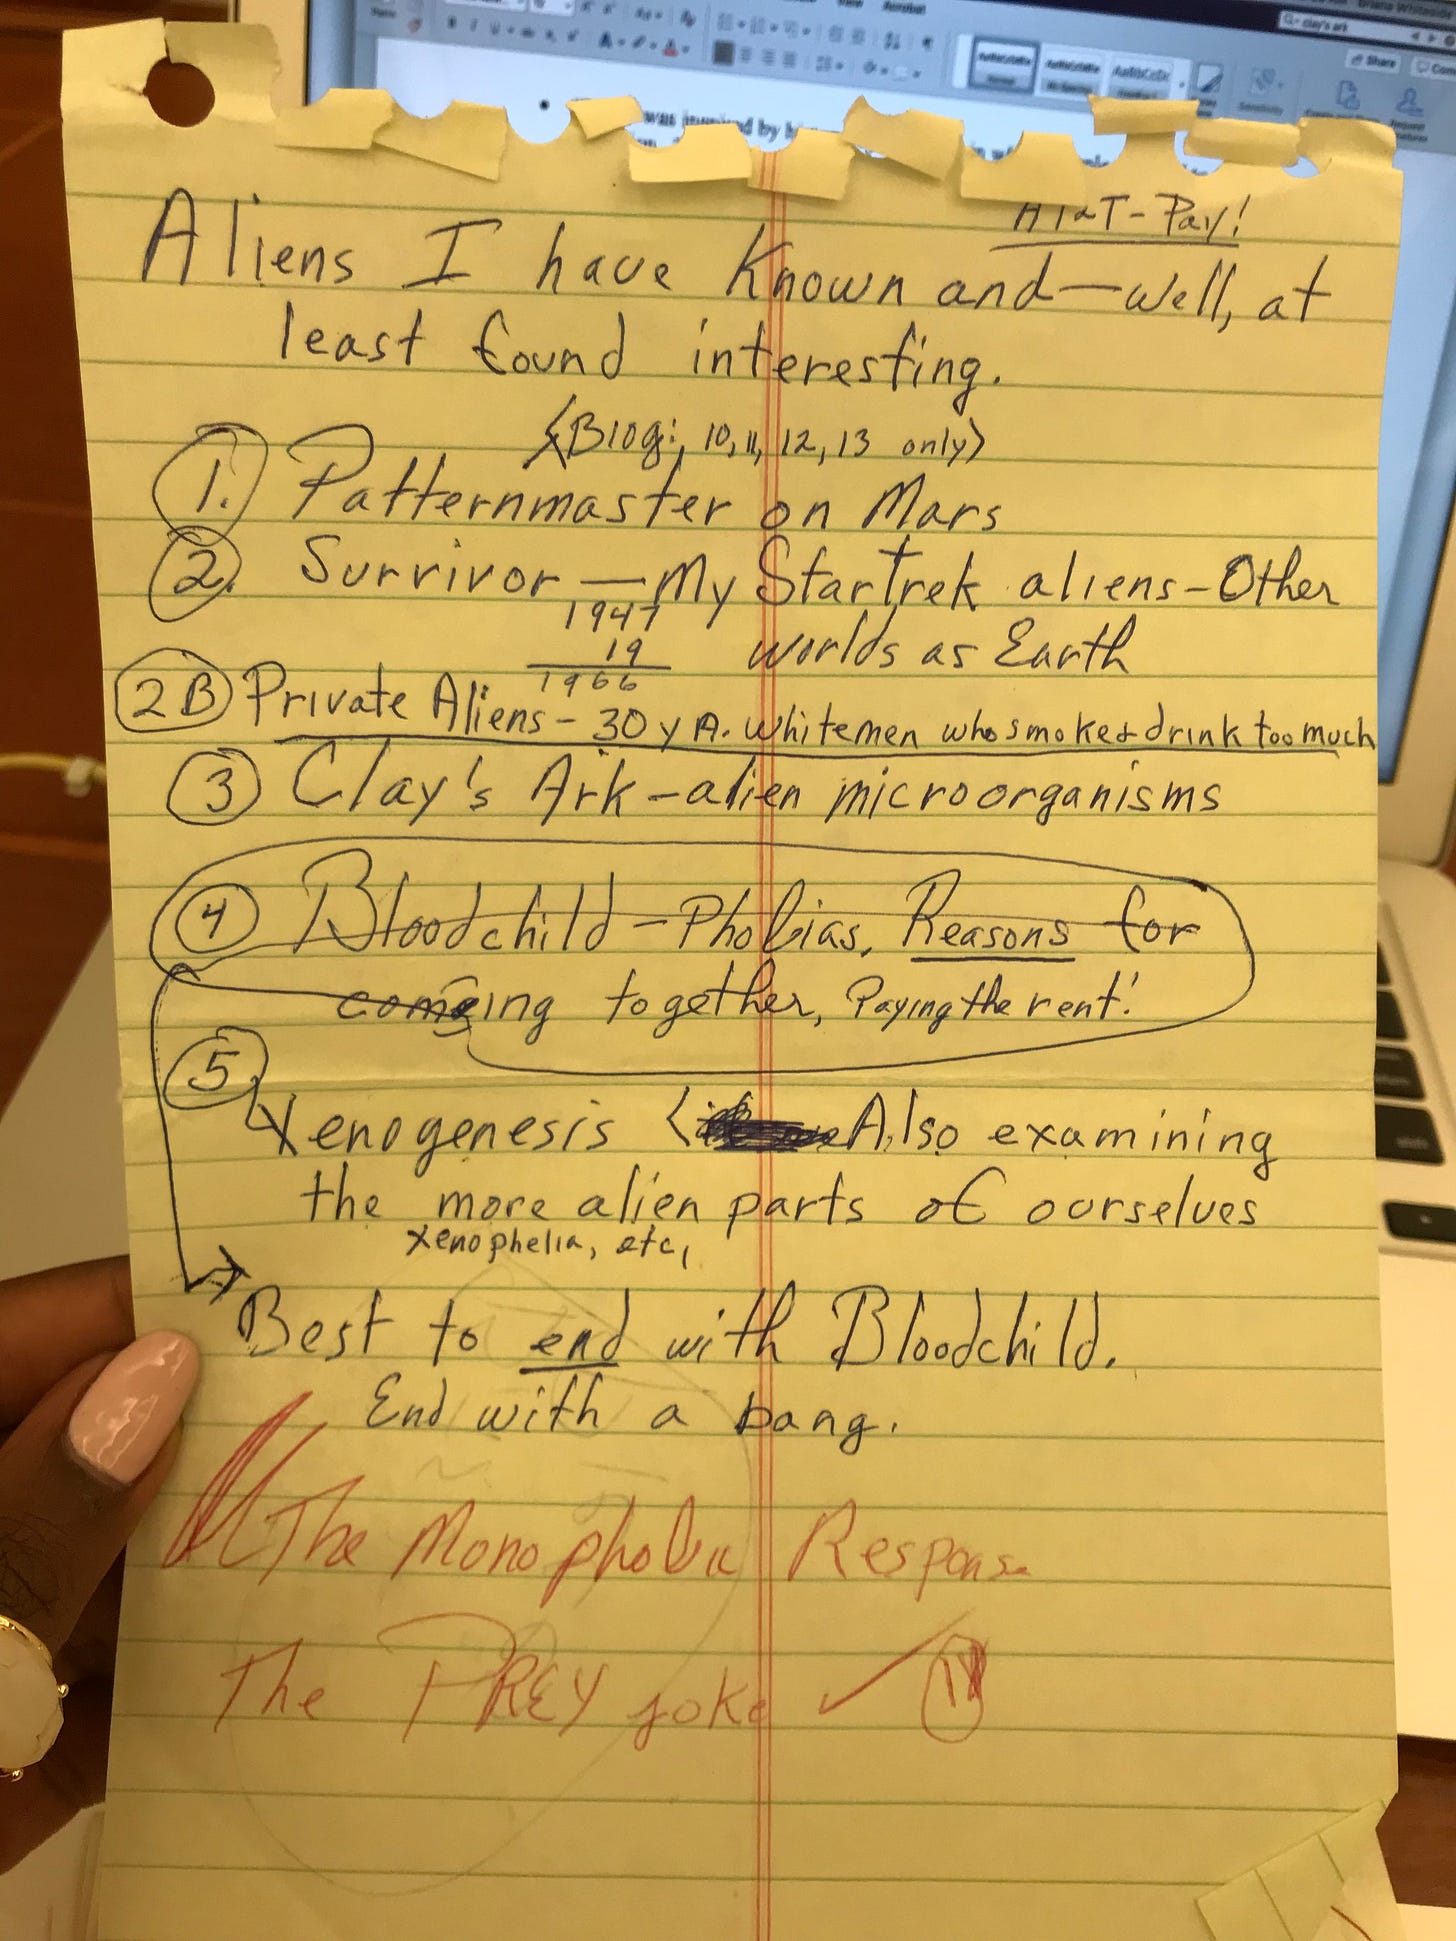 AT&T - Pay!
Aliens I have Known and—well, at
least found interesting.
<Blog:, 10, 11, 12, 13 only>
1. Patternmaster on Mars
2. Survivor — My StarTrek aliens - Other
worlds as Earth
1947
19
1966
2B Private Aliens - 30 y A. Whitemen who smoke & drink too much
3 Clay's Ark - alien microorganisms
4 Bloodchild - Phobias, Reasons for
coming together, Paying the rent!
5
Xenogenesis < Also examining
the more alien parts of ourselves
xenophelia, etc,
Best to end with Bloodchild.
End with a bang.
The Monophobic Response
The PREY joke ✓
was inspired by
Acrobat
clay's ark
Share
AaBbCcDc